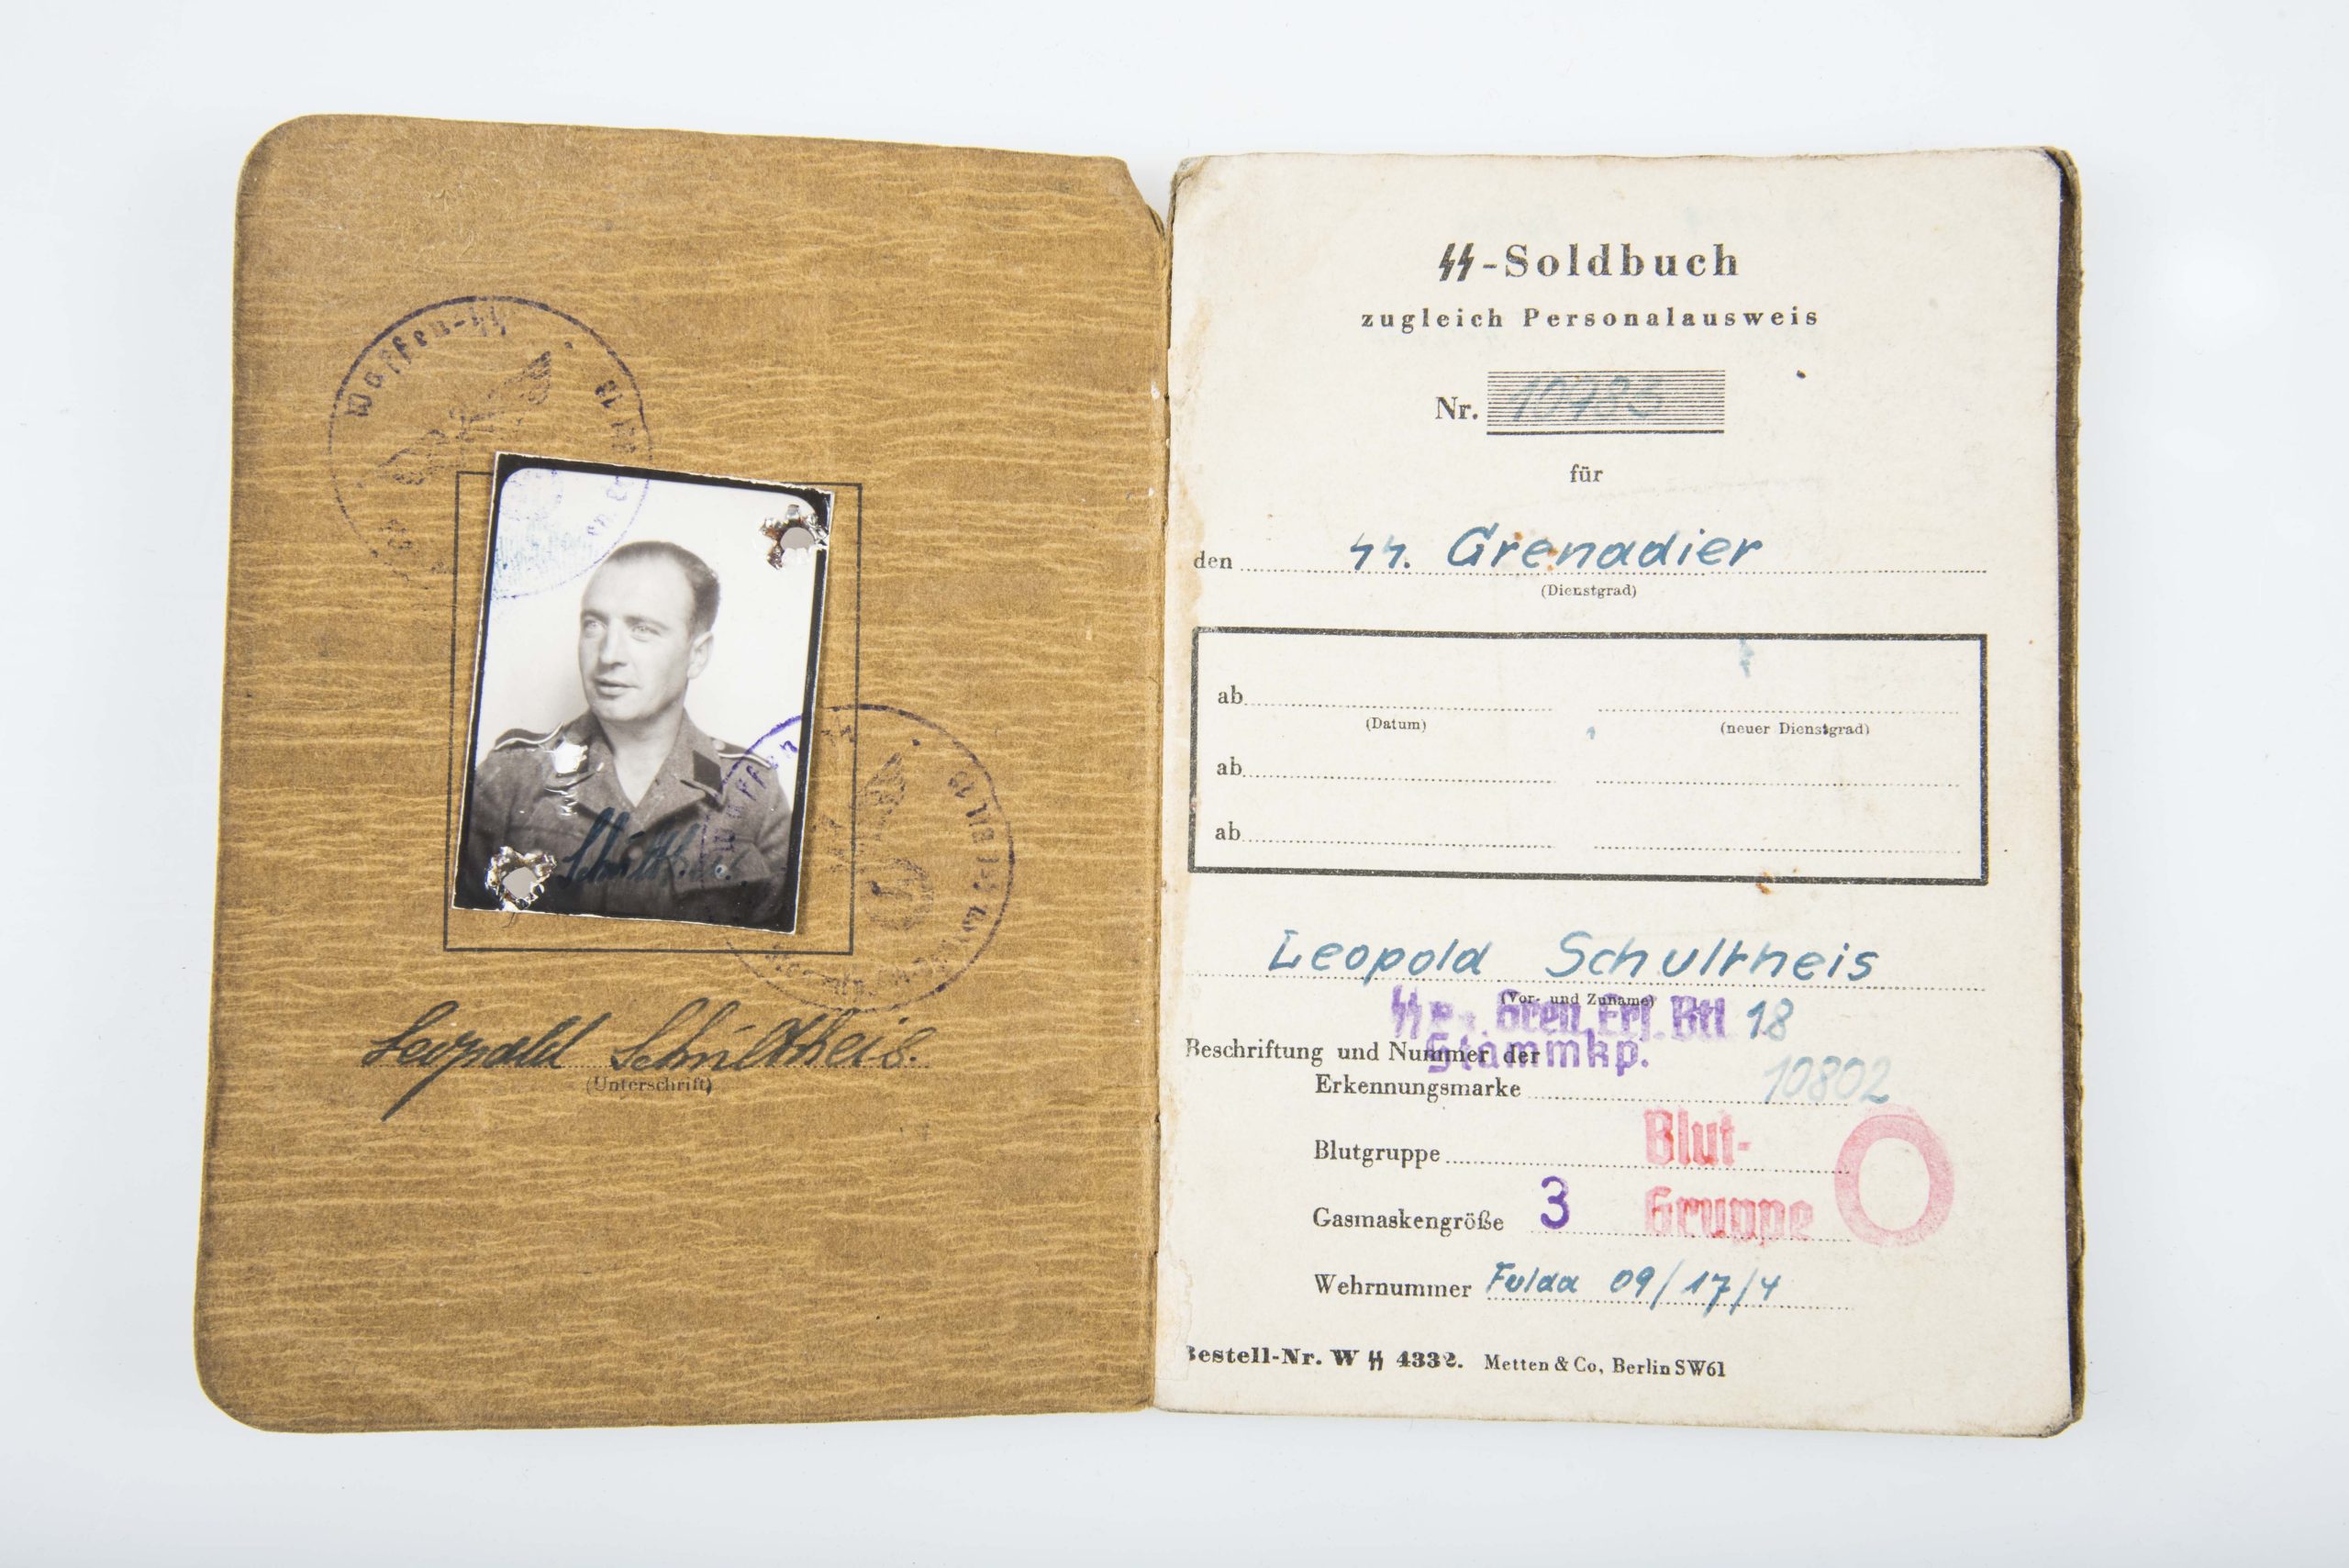 Waffen-SS
Schultheis
Leopold Schultheis.
(Unterschrift)
SS-Soldbuch
zugleich Personalausweis
Nr.
für
den SS. Grenadier
(Dienstgrad)
ab
(Datum) (neuer Dienstgrad)
ab
ab
Leopold Schultheis
(Vor- und Zuname)
Gren. Ers. Btl 18
Beschriftung und Nummer der
Stammkp.
Erkennungsmarke 10802
Blutgruppe Blut-
Gruppe O
Gasmaskengröße 3
Wehrnummer Fulda 09/17/4
Bestell-Nr. W SS 4332. Metten & Co, Berlin SW61